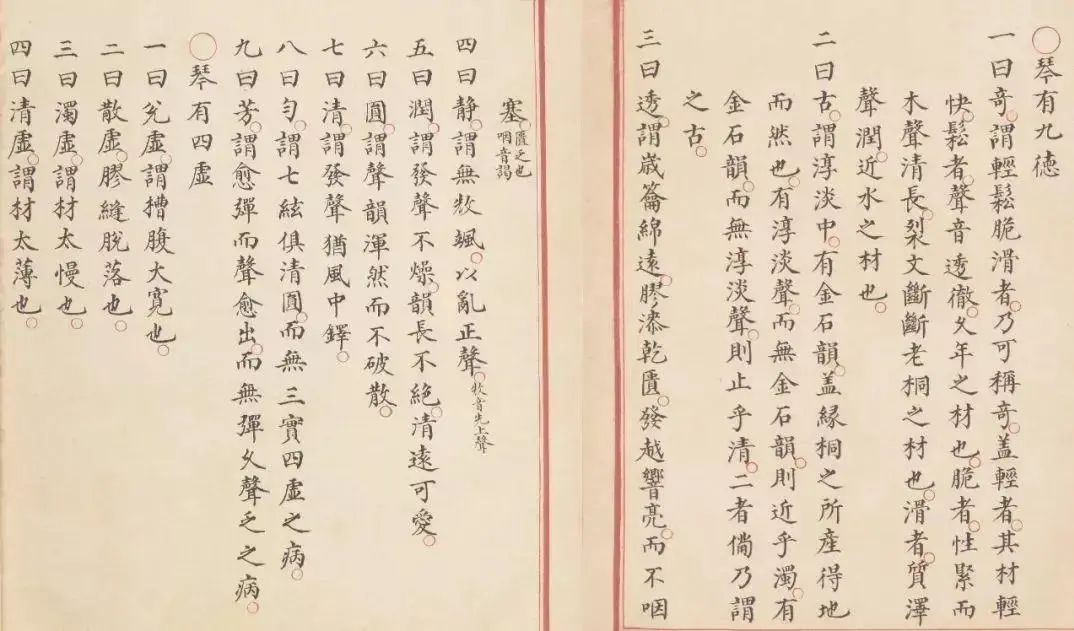 ○琴有九德
一曰奇。謂輕鬆脆滑者。乃可稱奇。盖輕者。其材輕
快。鬆者。聲音透徹。久年之材也。脆者。性緊而
木聲清長。裂文斷斷老桐之材也。滑者。質澤
聲潤。近水之材也。
二曰古。謂淳淡中。有金石韻。盖緣桐之所產得地
而然也。有淳淡聲。而無金石韻。則近乎濁。有
金石韻。而無淳淡聲。則止乎清。二者備乃謂
之古。
三曰透。謂歲籥綿遠。膠漆乾匱。發越響亮。而不咽
塞。匱乏也咽音謁
四曰静。謂無㪇颯。以亂正聲。㪇音先上聲
五曰潤。謂發聲不燥。韻長不絶。清遠可愛。
六曰圓。謂聲韻渾然而不破散。
七曰清。謂發聲猶風中鐸。
八曰匀。謂七絃俱清圓。而無三實四虚之病。
九曰芳。謂愈彈而聲愈出。而無彈久聲乏之病。
○琴有四虚
一曰㳂虚。謂槽腹大寬也。
二曰散虚。膠縫脫落也。
三曰濁虚。謂材太慢也。
四曰清虚。謂材太薄也。